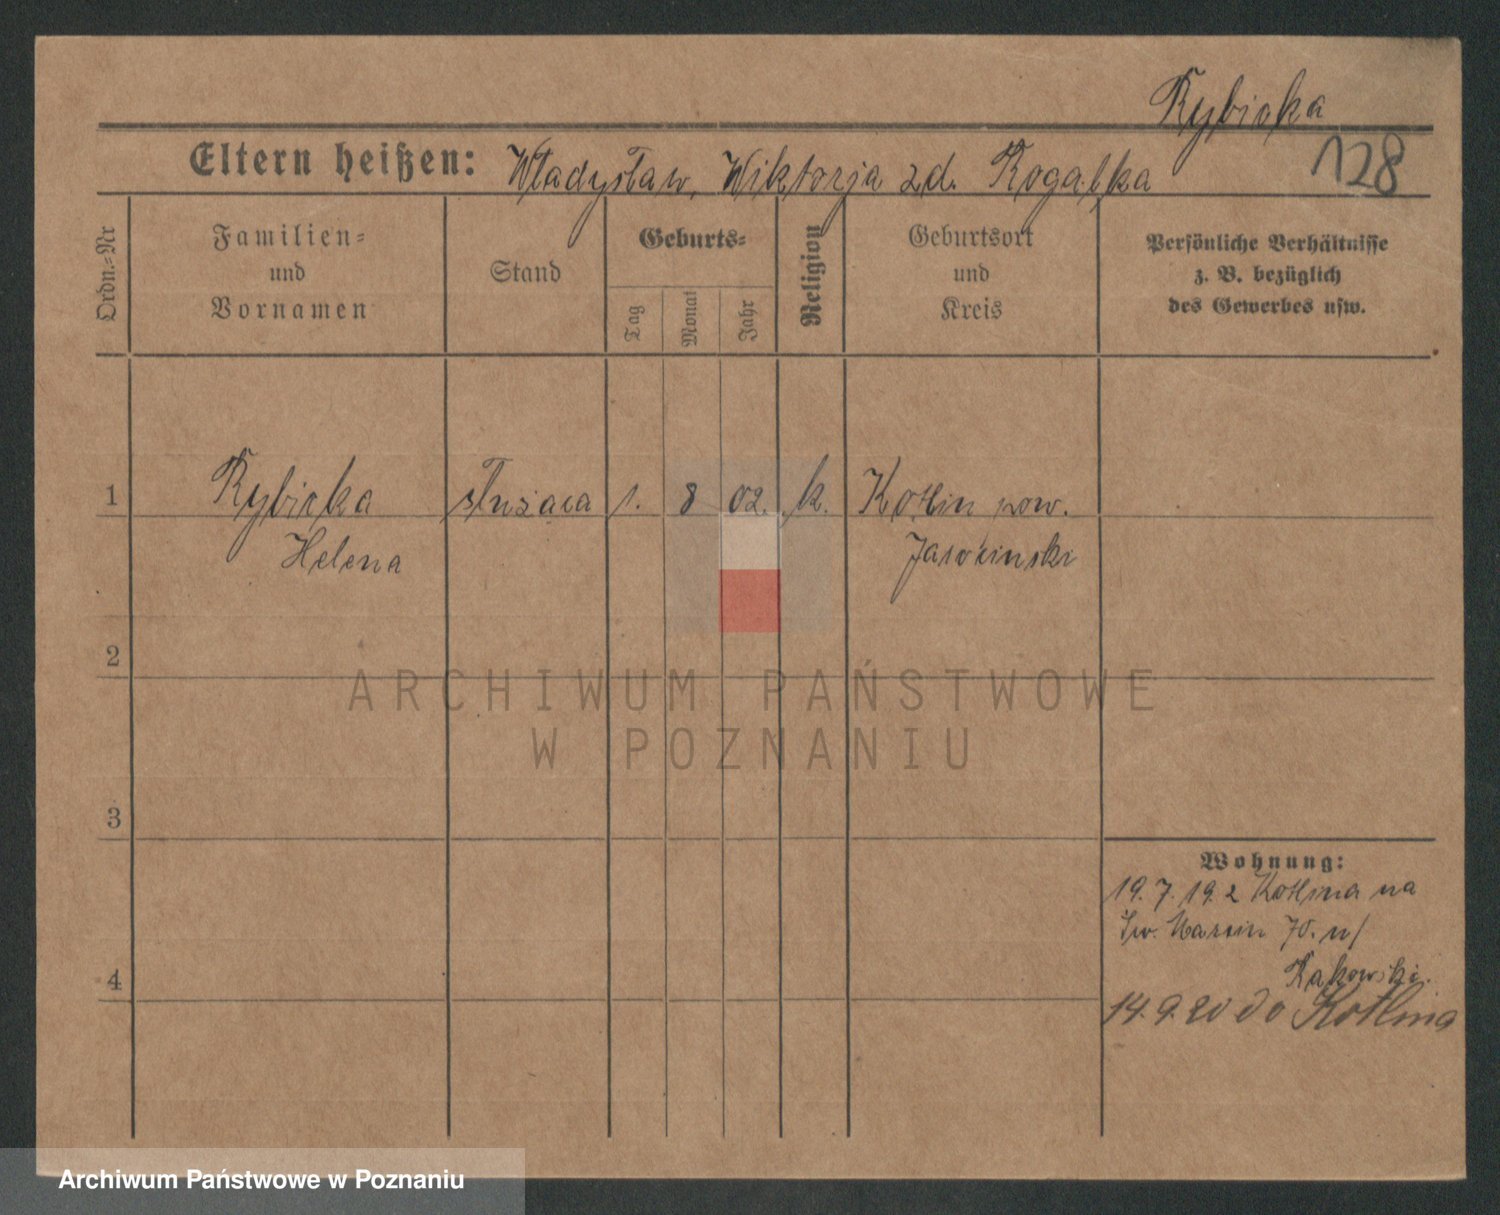 Rybicka
Eltern heißen: Władysław, Wiktorja zd. Rogalka
128
Ordn.-Nr
Familien-
und
Vornamen
Stand
Geburts-
Tag
Monat
Jahr
Religion
Geburtsort
und
Kreis
Persönliche Verhältnisse
z. B. bezüglich
des Gewerbes usw.
1
Rybicka
Helena
służąca
1.
8
02.
k.
Kotlin pow.
Jarocinski
2
3
4
Wohnung:
19. 7. 19. z Kotlina na
Św. Marcin 70. u/
Rakowski.
14. 9. 20 do Kotlina
ARCHIWUM PAŃSTWOWE
W POZNANIU
Archiwum Państwowe w Poznaniu